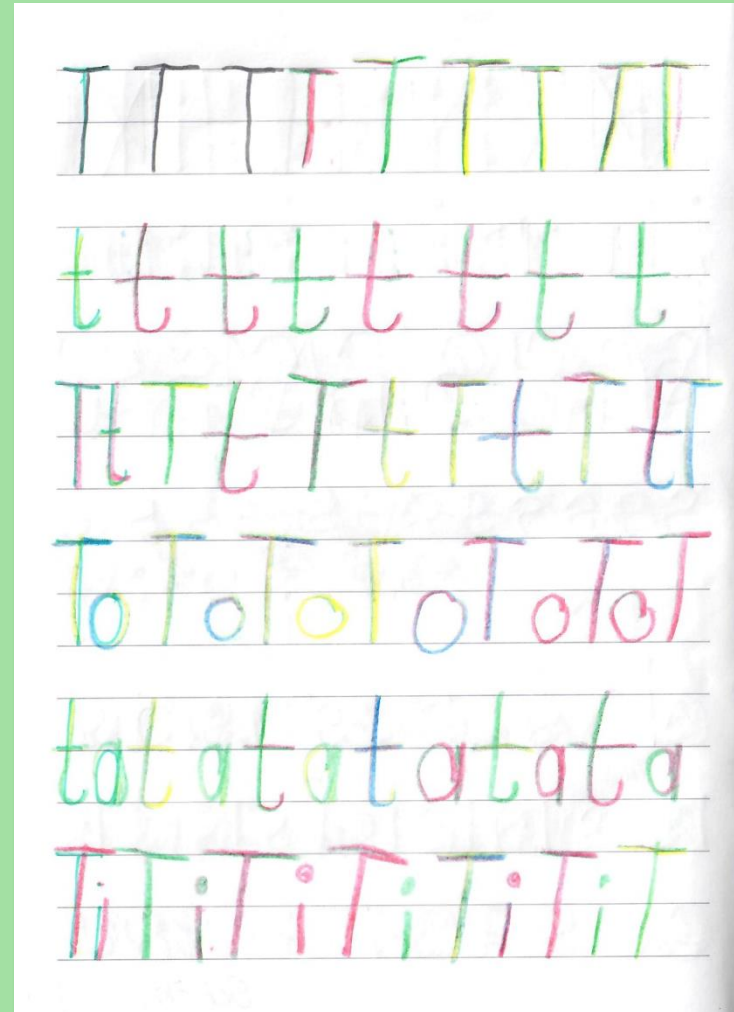 T T T T T T T T T
t t t t t t t t
Tt T t T t T t T t T
To T o T o T o T o T o T
ta t a t a t a t a t a
Ti T i T i T i T i T i T